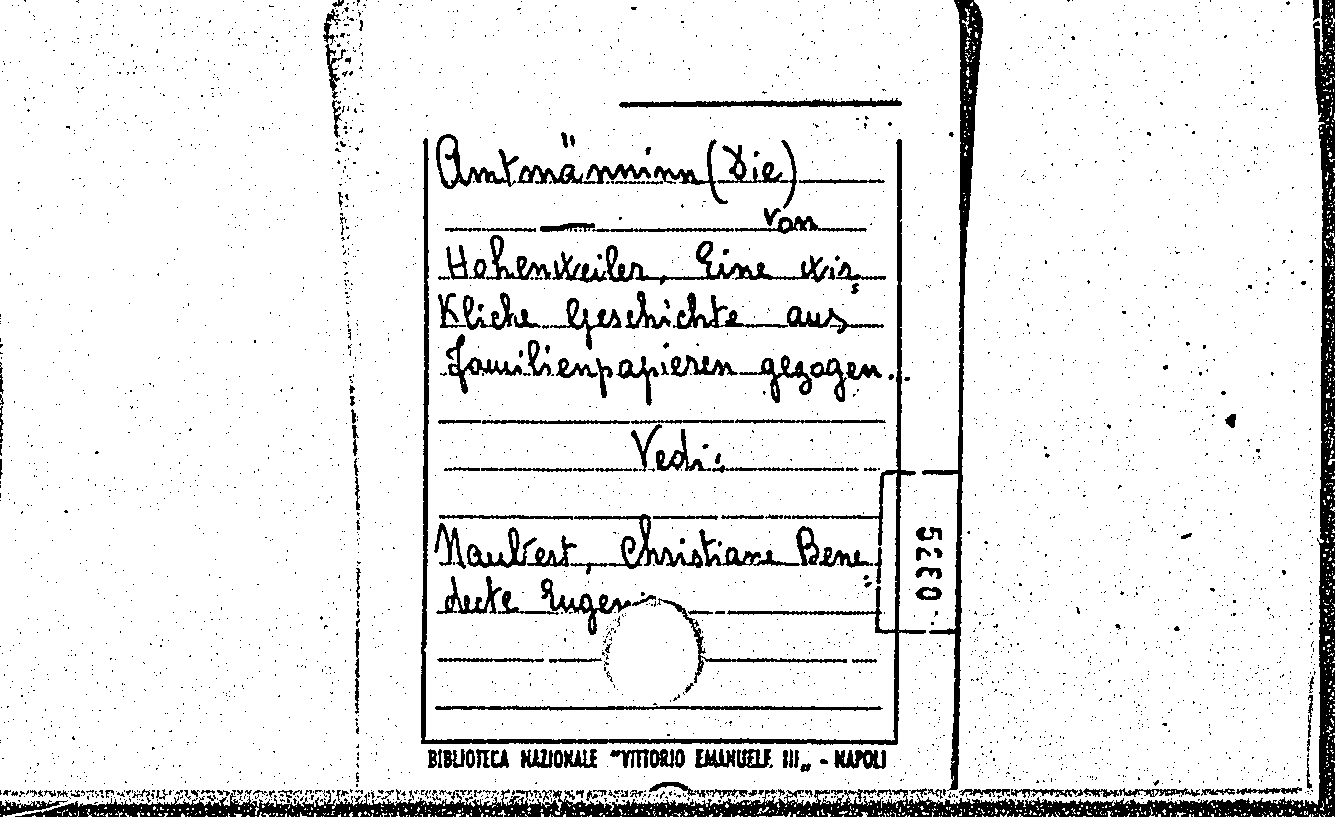 Amtmänninn (Die)
— von
Hohenweiler. Eine wir
kliche Geschichte aus
Familienpapieren gezogen...
Vedi:
Naubert, Christiane Bene=
decte Eugenie
BIBLIOTECA NAZIONALE "VITTORIO EMANUELE III„ - NAPOLI
0335